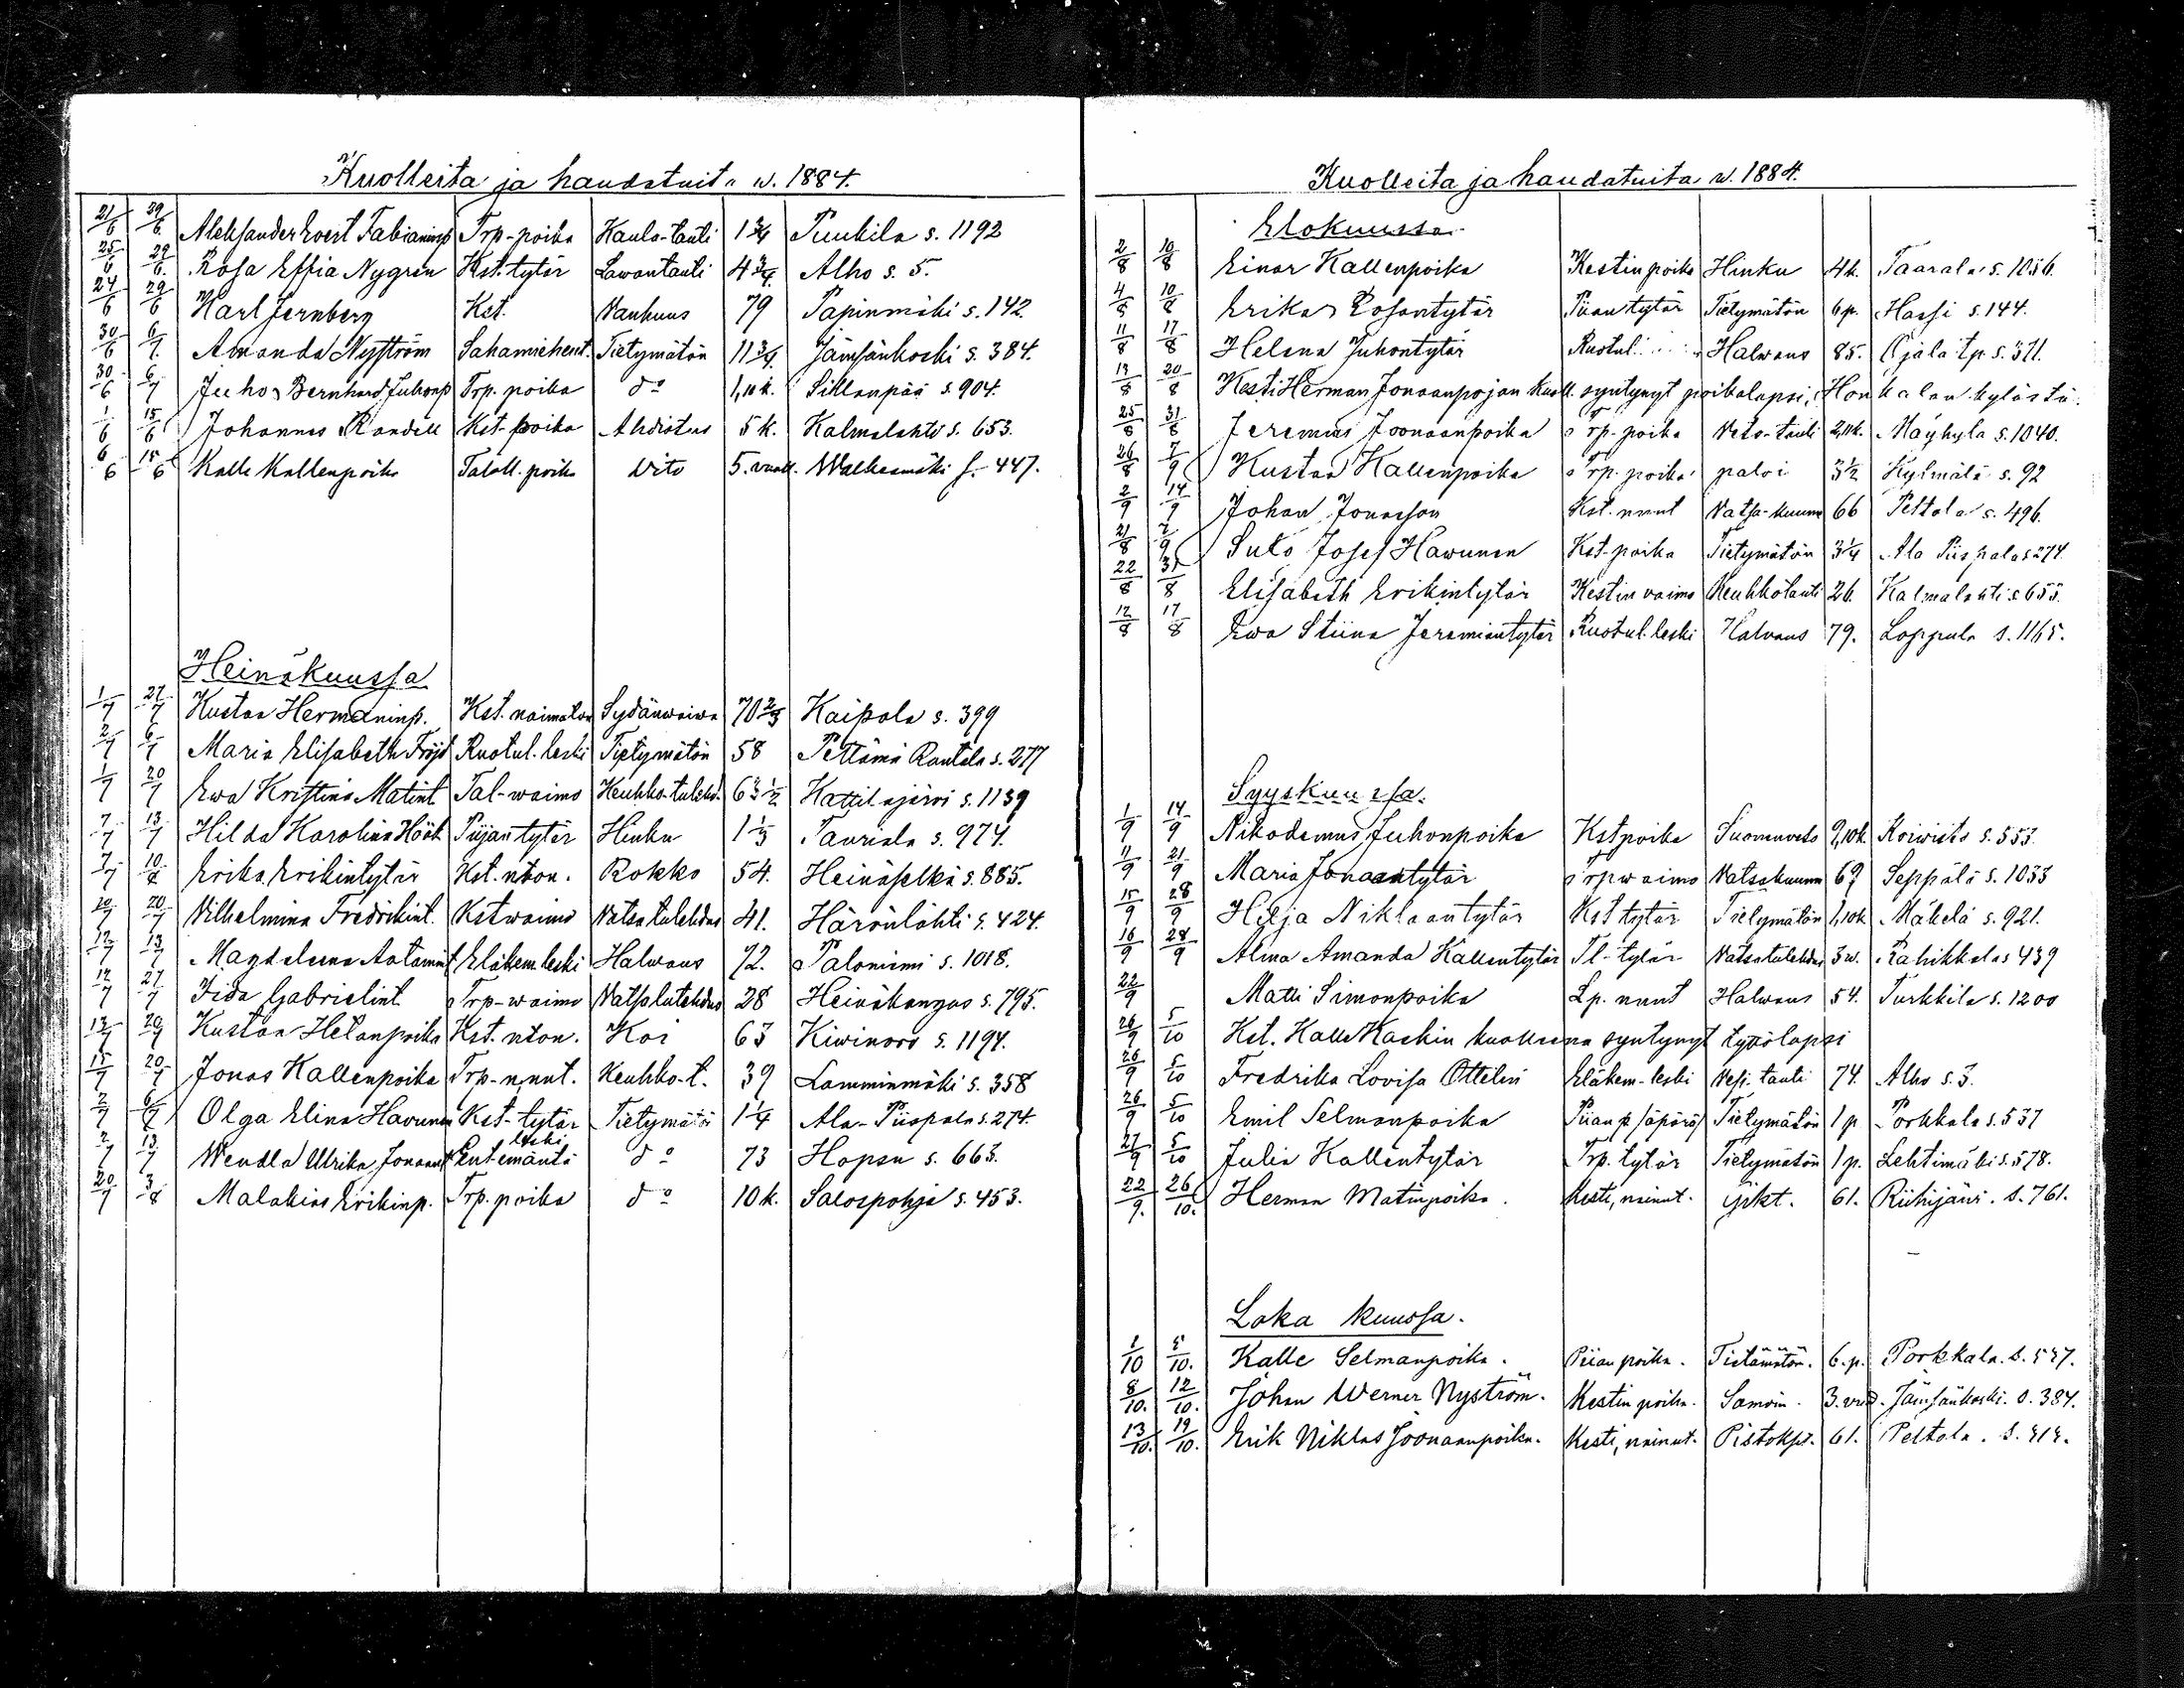 Kuolleita ja haudatuita w. 1884.
21/6 29/6 Aleksander Evert Fabianinp Trp-poika Kaula-tauti 1 3/4 Puukila s. 1192
25/6 29/6 Rosa Effia Nygren Kst. tytär Lavantauti 4 3/4 Alho s. 5.
24/6 29/6 Karl Jernberg Kst. Vanhuus 79 Papinmäki s. 142
30/6 6/7 Amanda Nyström Sahamiehent. Tietymätön 11 3/4 Jämsänkoski s. 384.
30/6 6/7 Juho Bernhard Juhonp Trp. poika do 1,10 k. Sillanpää s. 904.
1/6 15/6 Johannes Randell Kst-poika Ahdistus 5 k. Kalmalahti s. 653.
6/6 15/6 Kalle Kallenpoika Taloll. poika Dito 5. vuod. Walkeamäki s. 447.
Heinäkuussa
1/7 27/7 Kustaa Hermaninp. Kst. naimaton Sydänwaiwa 70 2/3 Kaipola s. 399
2/7 6/7 Maria Elisabeth Fröjd Ruotul. leski Tietymätön 58 Pettämä Rantala s. 277
1/7 20/7 Ewa Kristina Matint Tal-waimo Keuhko-tulehd. 63 1/2 Kattilajärvi s. 1139
7/7 13/7 Hilda Karolina Höök Piijan tytär Hinku 1 1/3 Tauriala s. 974.
7/7 10/8 Erika Erikintytär Kst. nton. Rokko 54. Heinäselkä s. 885.
10/7 20/7 Vilhelmina Fredrikint. Kst waimo Vatsatulehdus 41. Häränlähti s. 424.
12/7 13/7 Magdaleena Aatamint Eläkem leski Halwaus 72. Paloniemi s. 1018.
12/7 27/7 Iida Gabrielint. Trp-waimo Vatsatulehdus 28 Heinäkangas s. 795.
13/7 20/7 Kustaa Helanpoika Kst. nton. Koi 63 Kiwinoro s. 1194.
15/7 20/7 Jonas Kallenpoika Trp-n.nut. Keuhko-t. 39 Lamminmäki s. 358
2/7 6/7 Olga Elina Havunen Kst-tytär Tietymätö 1 1/4 Ala-Piispala s. 274.
2/7 13/7 Wendla Ulrika Jonaant Ent emäntä leski do 73 Hopsu s. 663.
20/7 3/8 Malakias Erikinp. Trp. poika do 10 k. Salospohja s. 453.
Kuolleita ja haudatuita w. 1884.
Elokuussa
2/8 10/8 Einar Kallenpoika Kestin poika Hinku 4 k. Taarala s. 1056.
4/8 10/8 Erika Rosantytär Piian tytär Tietymätön 6 p. Hassi s. 144.
11/8 17/8 Helena Juhontytär Ruotul. Halwaus 85. Ojala tp s. 371.
13/8 20/8 Kesti Herman Jonaanpojan kuoll. syntynyt poikalapsi, Honkalan kylästä.
25/8 31/8 Jeremias Joonaanpoika Trp. poika Veto-tauti 2,11k. Mäyhylä s. 1040.
26/8 7/9 Kustaa Kallenpoika Trp. poika paloi 3 1/2 Kylmälä s. 92
2/9 14/9 Johan Jonasson Kst. nnut Vatsa-kuume 66 Peltola s. 496.
21/8 7/9 Sulo Josef Hawunen Kst-poika Tietymätön 3 1/4 Ala Piispala s 274.
22/8 31/8 Elisabeth Erikintytär Kestin vaimo Keuhkotauti 26. Kalmalahti s. 655.
12/8 17/8 Ewa Stiina Jeremiantytär Ruotul. leski Halvaus 79. Loppula s. 1165.
Syyskuussa.
1/9 14/9 Nikodemus Juhonpoika Kst poika Suonenveto 9,10k. Koiwisto s. 553.
11/9 21/9 Maria Jonaantytär Trpwaimo Vatsakuume 69 Seppälä s. 1033
15/9 28/9 Hilja Niklaantytär Kst tytär Tietymätön 1,10k Mäkelä s. 921.
16/9 28/9 Alma Amanda Kallentytär Tl-tytär Vatsatulehdus 3 w. Rahikkala s 439
22/9 Matti Simonpoika Lp. nnut Halwaus 54. Turkkila s. 1200
26/9 5/10 Kst. Kalle Kaskin kuolleena syntynyt tyttölapsi
26/9 5/10 Fredrika Lovisa Ottelin Eläkem-leski Vesi-tauti 74. Alho s. 3.
26/9 5/10 Emil Selmanpoika Piian p /äpärä/ Tietymätön 1 p Porkkala s. 537
27/9 5/10 Julia Kallentytär Trp. tytär Tietymätön 1 p. Lehtimäki s. 578.
22/9. 26/10. Herman Matinpoika. Kesti, nainut. Yskt. 61. Riihijärvi. s. 761.
Lokakuussa.
1/10 5/10. Kalle Selmanpoika. Piian poika. Tietämätön. 6. p. Porkkala. s. 537.
8/10. 12/10. Johan Werner Nyström. Kestin poika. Samoin. 3. vuod. Jämsänkoski. s. 384.
13/10. 19/10. Erik Niklas Joonaanpoika. Kesti, nainut. Pistokst. 61. Peltola. s.